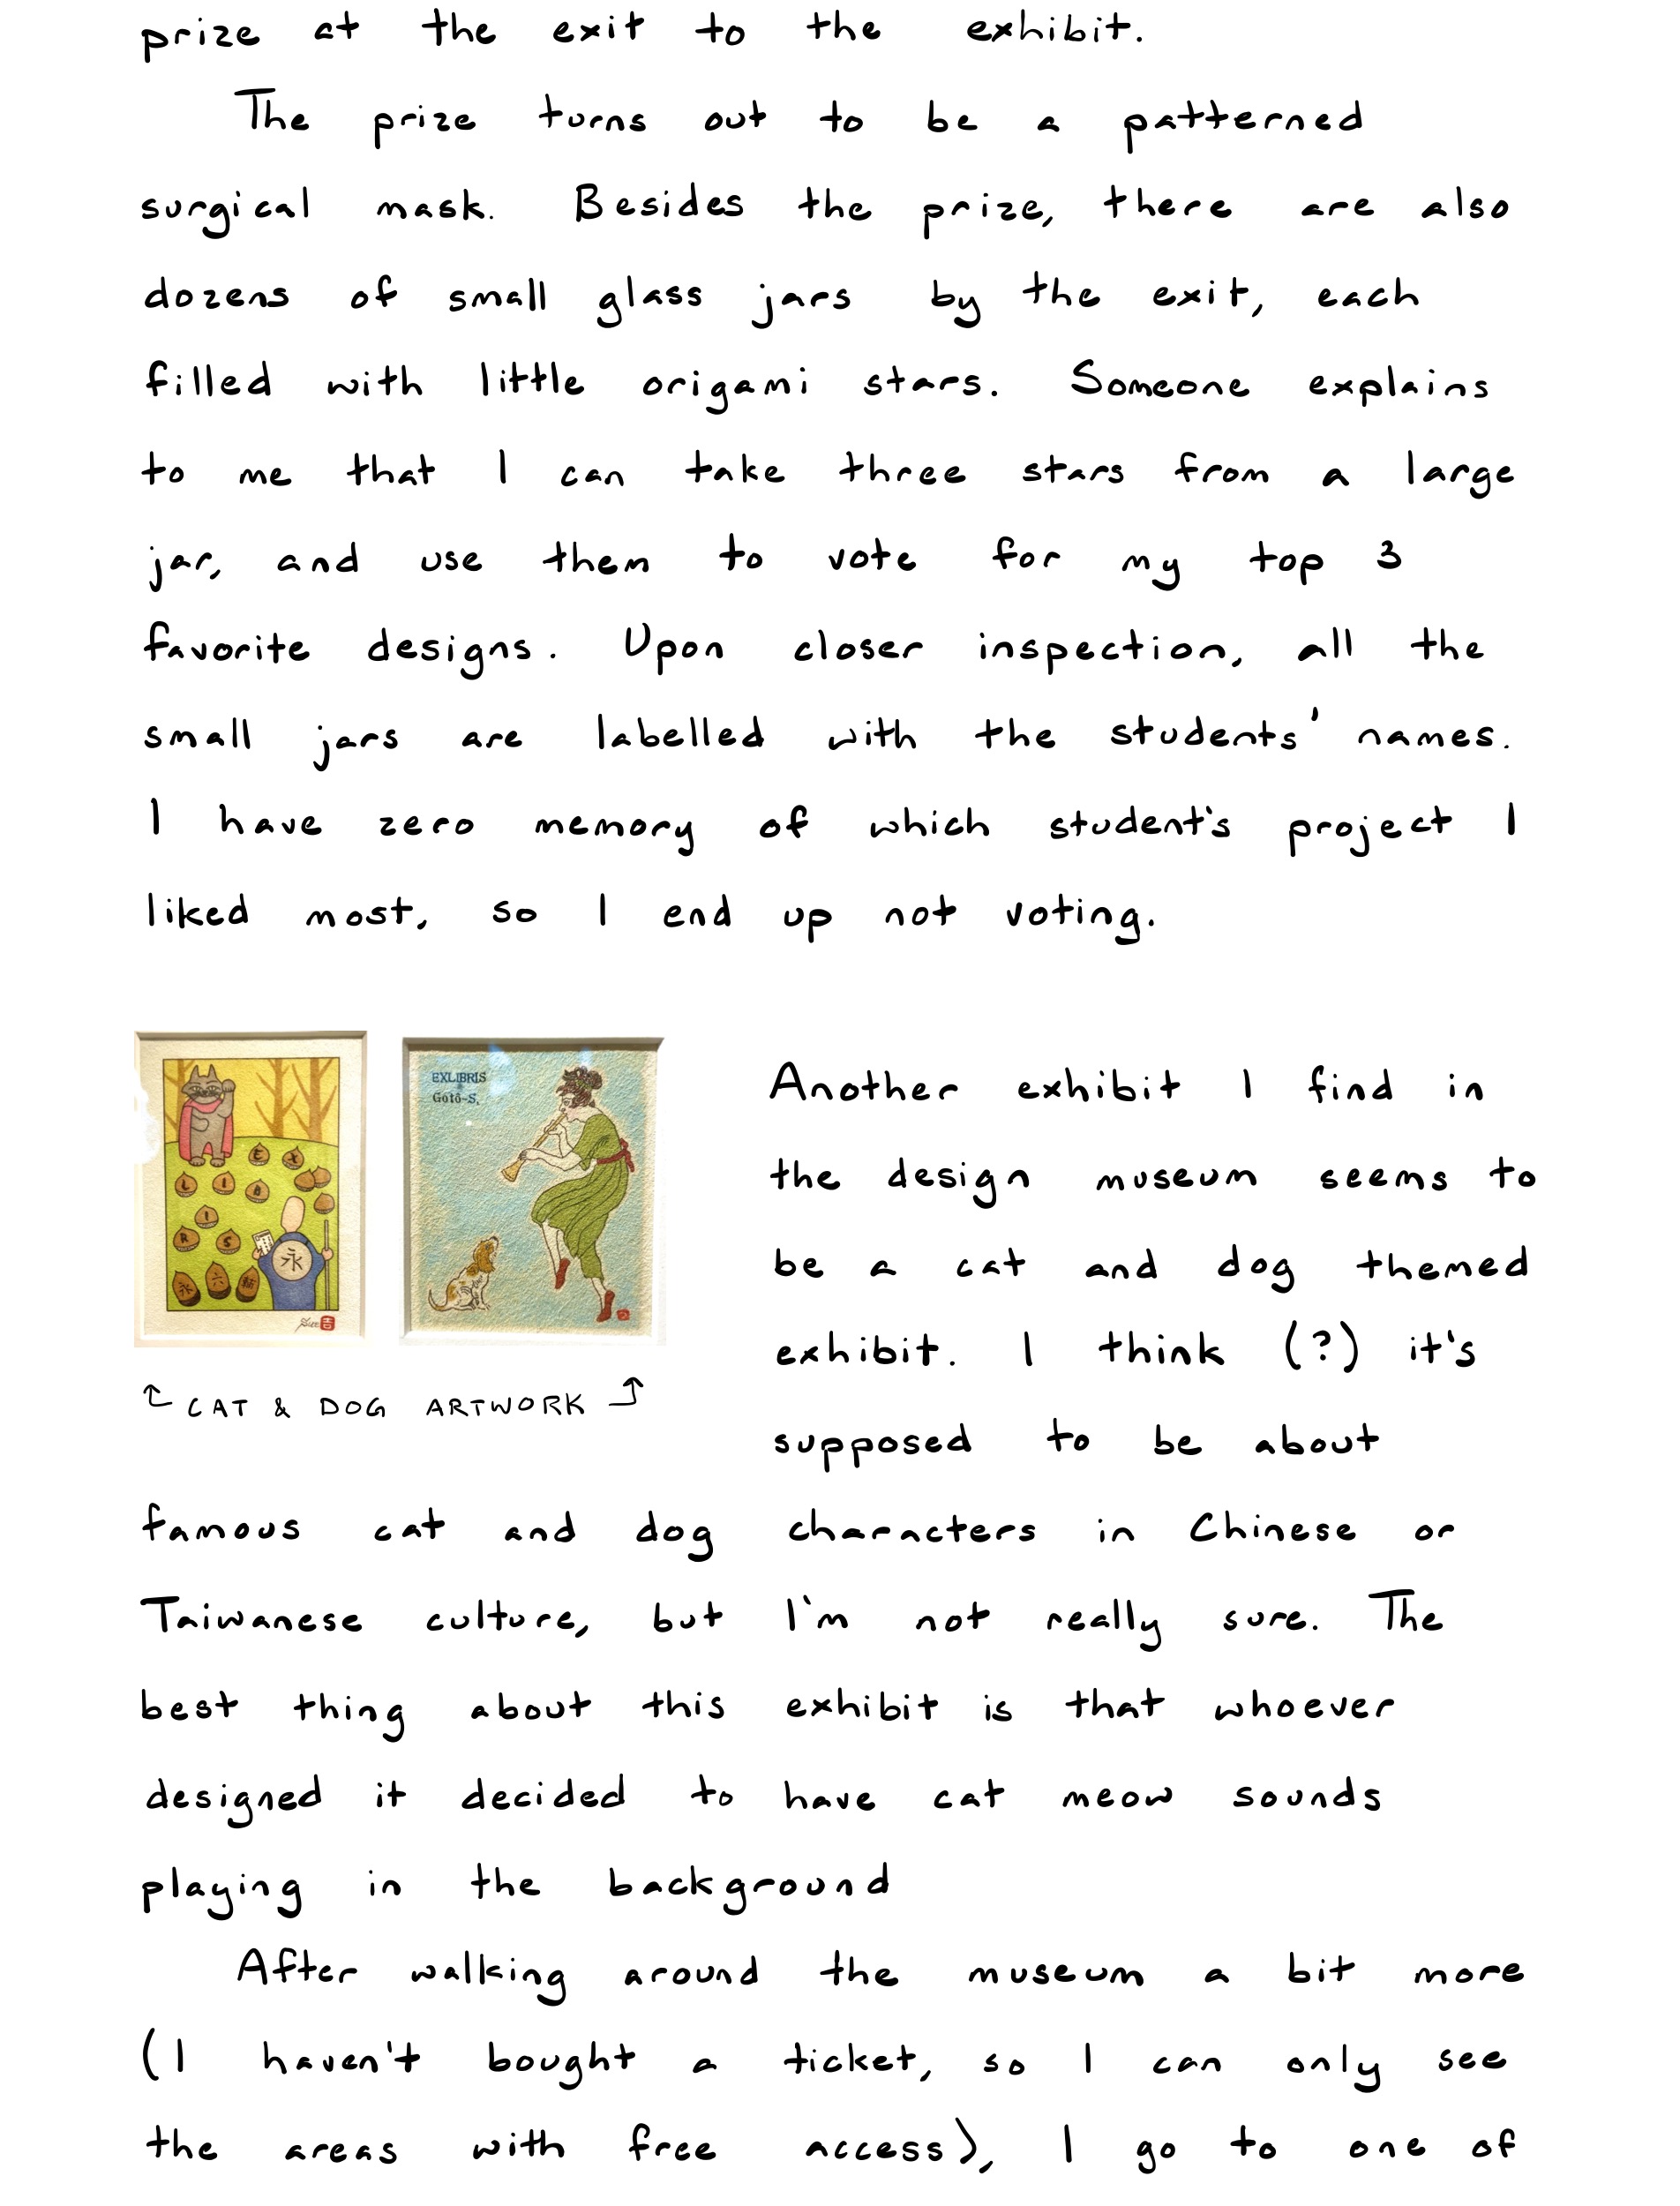 prize at the exit to the exhibit.
The prize turns out to be a patterned
surgical mask. Besides the prize, there are also
dozens of small glass jars by the exit, each
filled with little origami stars. Someone explains
to me that I can take three stars from a large
jar, and use them to vote for my top 3
favorite designs. Upon closer inspection, all the
small jars are labelled with the students' names.
I have zero memory of which student's project I
liked most, so I end up not voting.
E X
L I B
I
R S
永 六 輔
永
吉
EXLIBRIS
Gotō-S.
↑ CAT & DOG ARTWORK ↑
Another exhibit I find in
the design museum seems to
be a cat and dog themed
exhibit. I think (?) it's
supposed to be about
famous cat and dog characters in Chinese or
Taiwanese culture, but I'm not really sure. The
best thing about this exhibit is that whoever
designed it decided to have cat meow sounds
playing in the background
After walking around the museum a bit more
(I haven't bought a ticket, so I can only see
the areas with free access), I go to one of